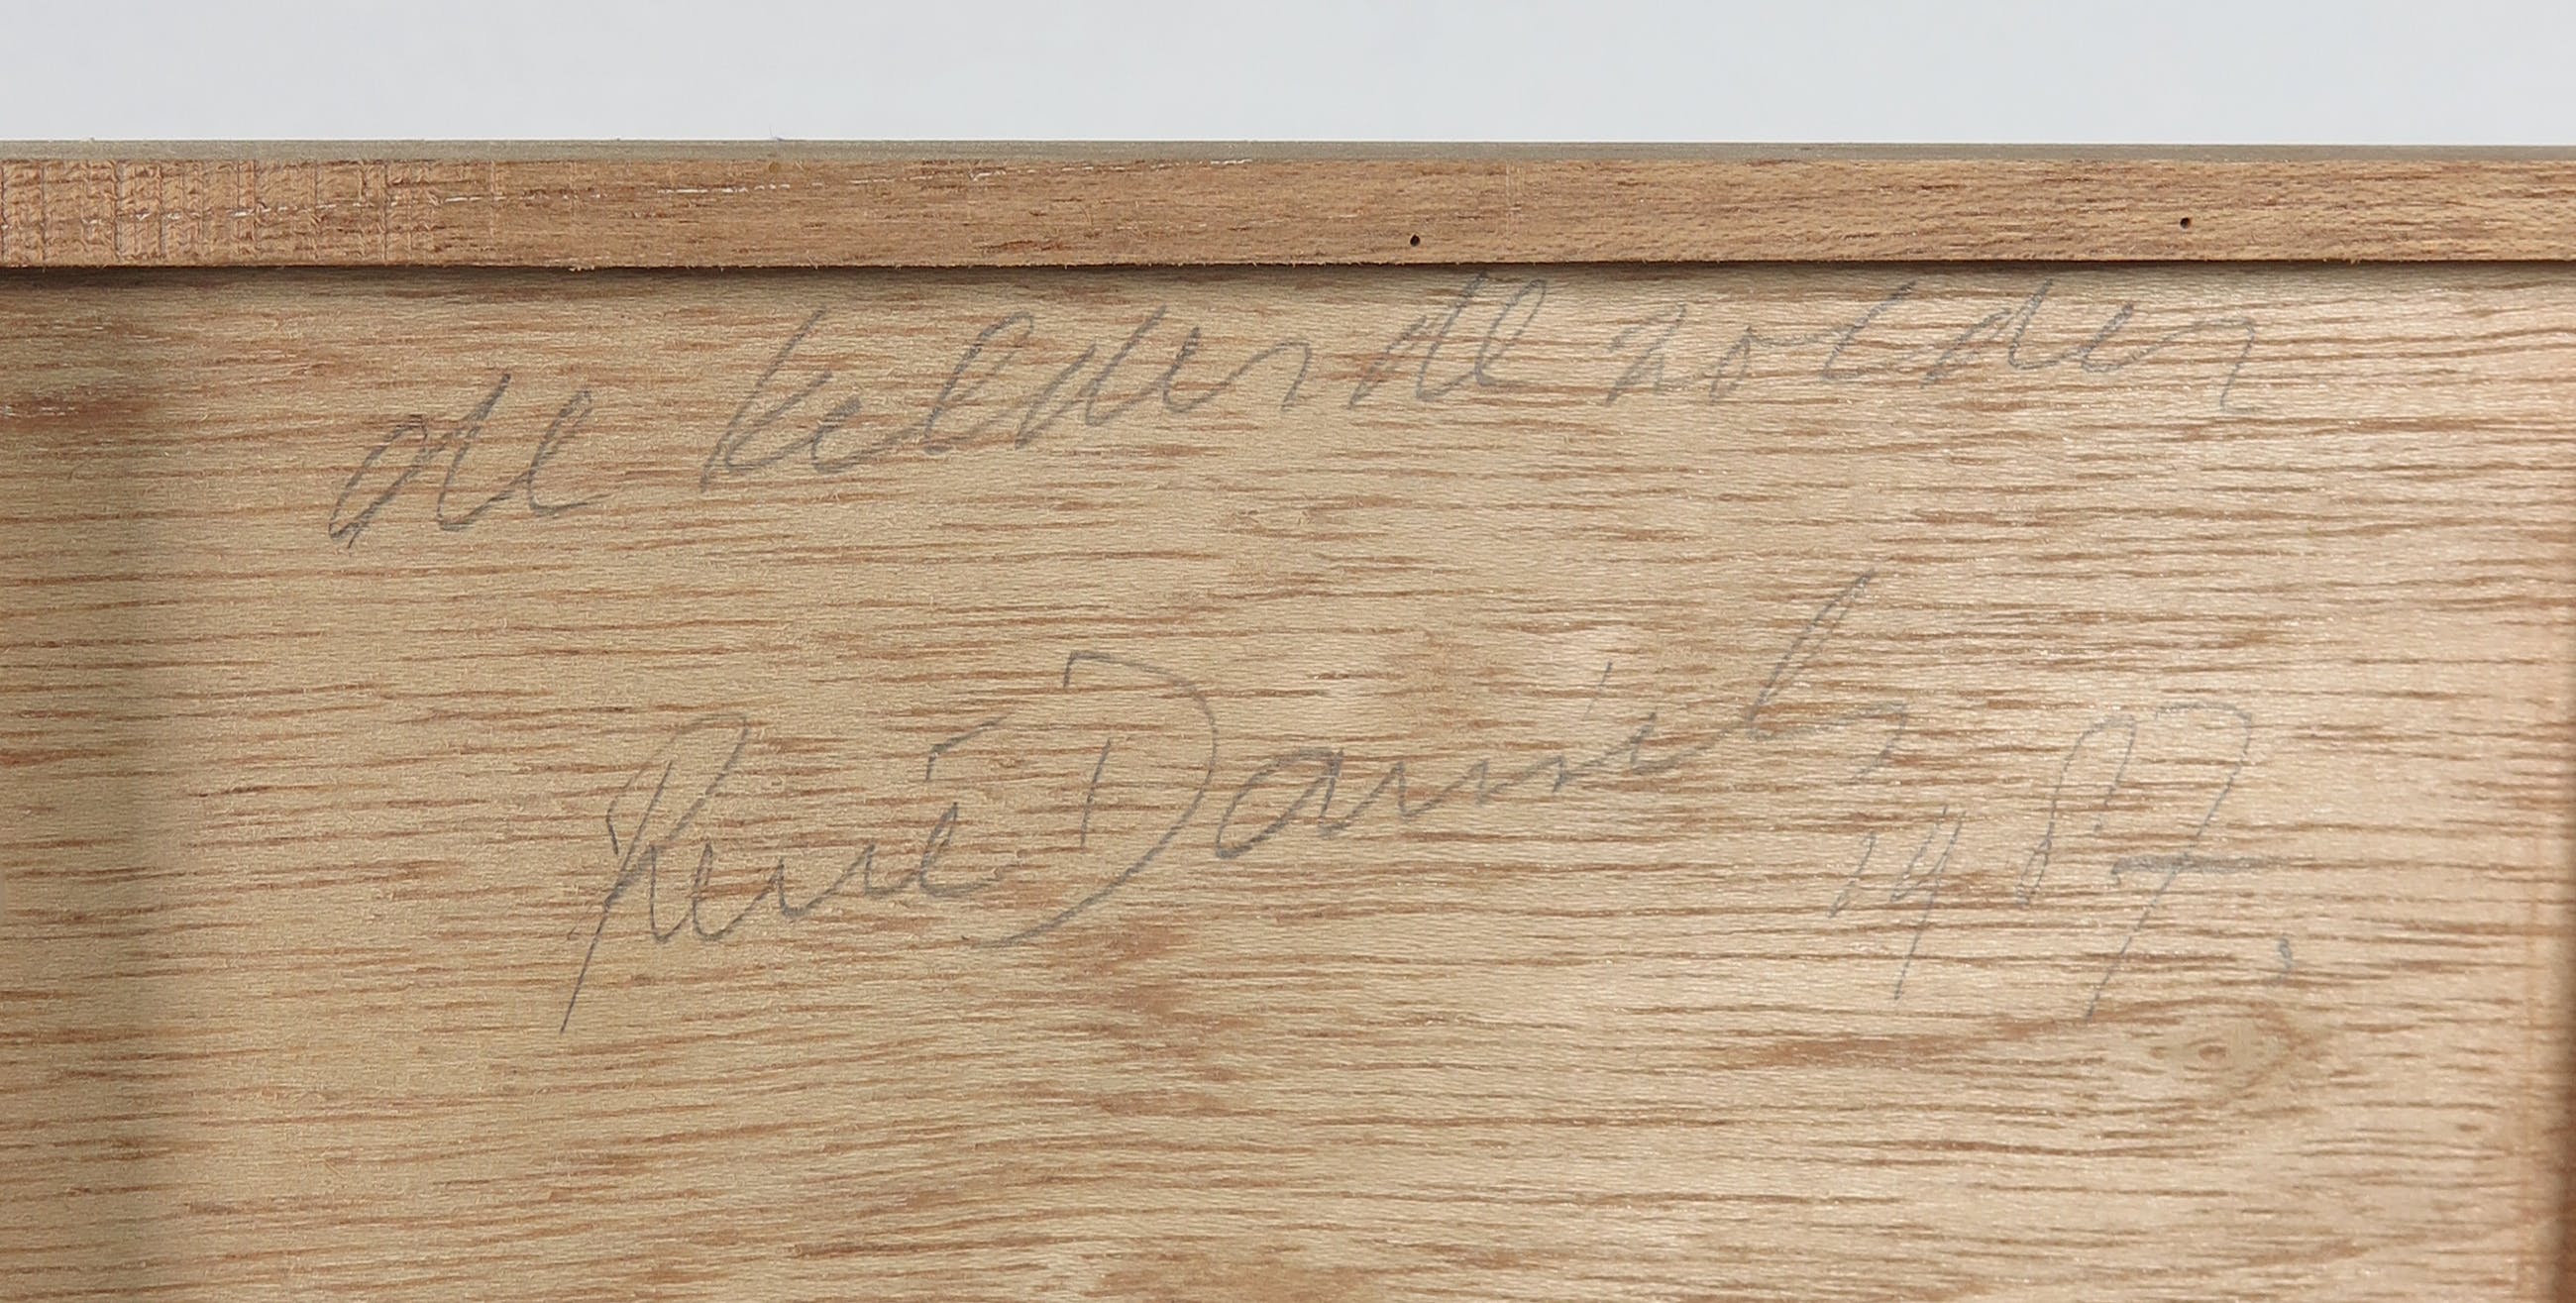 de kelder de zolder
René Daniëls
1987.